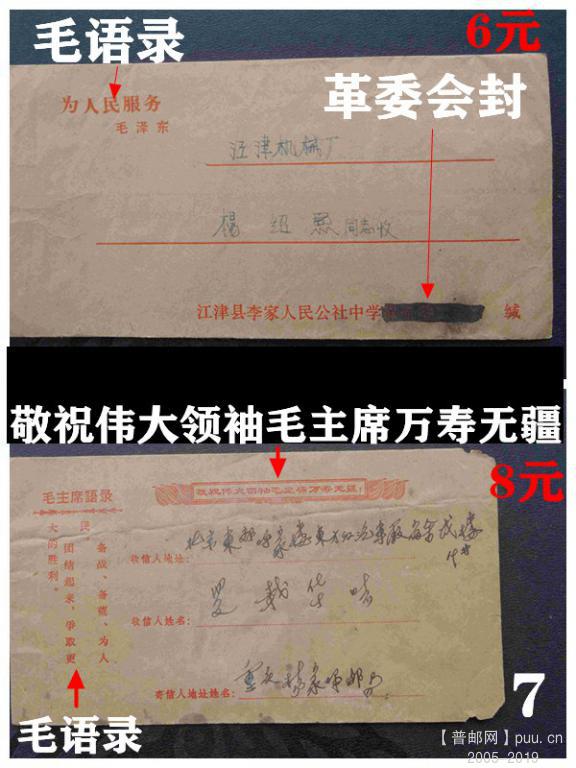 毛语录
6元
革委会封
为人民服务
毛泽东
江津机械厂
杨绍
同志收
江津县李家人民公社中学
缄
敬祝伟大领袖毛主席万寿无疆
8元
毛主席語录
敬祝伟大领袖毛主席万寿无疆！
备战、备荒、为人
民。
团结起来，爭取更
大的胜利。
收信人地址：
收信人姓名：
寄信人地址姓名：
重庆
毛语录
7
【普邮网】puu.cn
2005-2019